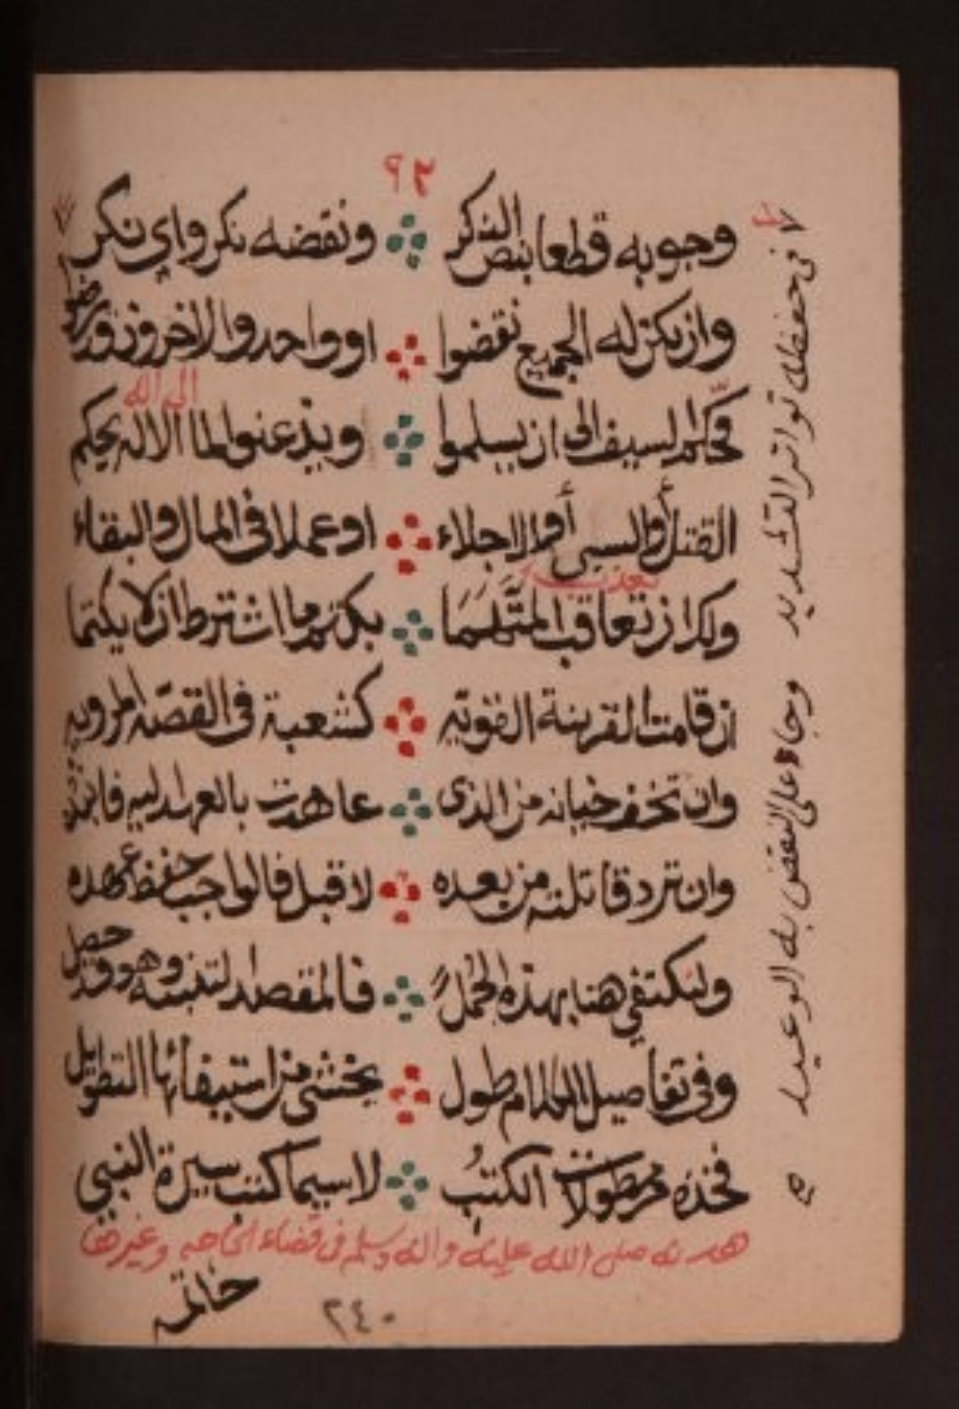 ٩٢
وجوبه قطعا بنص الذكر ونقضه نكر واي نكر
وان يكن له الجميع نقضوا او واحد والاخرون
فحكم السيف الى ان يسلموا ويذعنوا لما الاله يحكم
الى الله
القتل أو السبي أو الاجلاء او عملا في المال والبقاء
تعذيب
ولك ان تعاقب المتهما بكتم ما اشترط ان لا يكتما
ان قامت القرينة القويه كشعبة في القصة المرويه
وان تخف خيانه من الذي عاهدت بالعهد اليه فانبذ
وان ترد قاتلته من بعده لا قبل فالواجب حفظ عهده
ولنكتفي هنا بهذه الجمل فالمقصد التنبيه وهو قد حصل
وفي تفاصيل المقام طول يخشى من استيفائها التطويل
فخذه من مطولات الكتب لا سيما كتب سيرة النبي
صلى الله عليه واله وسلم في قضاء وغيرها
خاتمة
٢٤٠
في حفظه تواتر التشديد وجاء على النقض به الوعيد